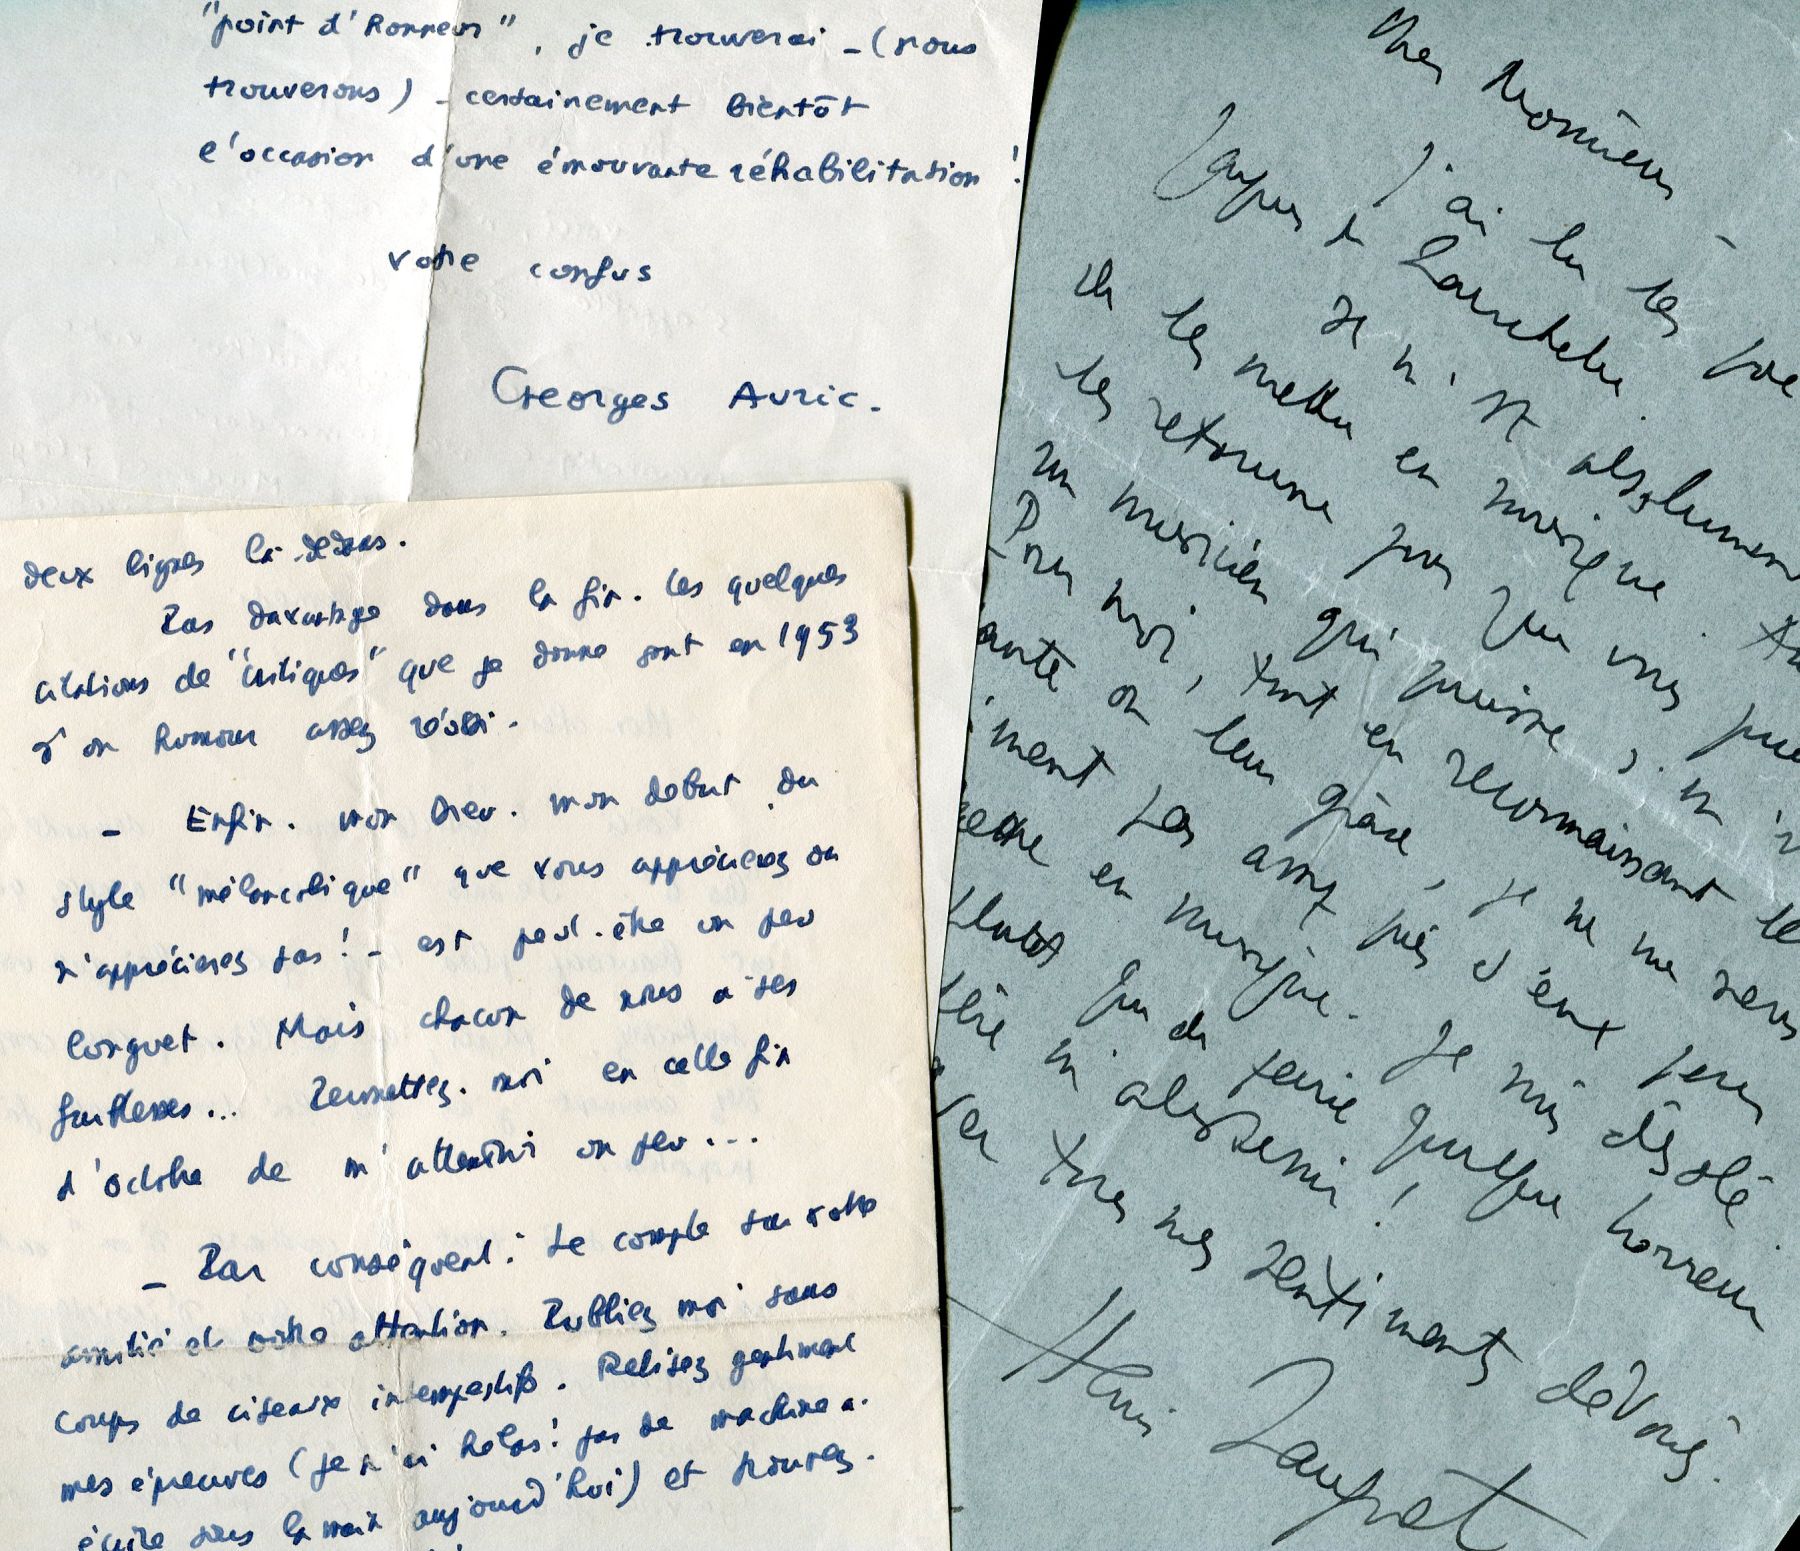 "point d'honneur", je trouverai _ (nous
trouverons) _ certainement bientôt
l'occasion d'une émouvante réhabilitation !
votre confus
Georges Auric.
deux lignes là-dedans.
Pas davantage dans la fin. Les quelques
citations de "critiques" que je donne sont en 1953
d'un humour assez réussi.
_ Enfin. mon Dieu. mon début du
style "mélancolique" que vous apprécierez ou
n'apprécierez pas ! _ est peut-être un peu
longuet. Mais chacun de nous a ses
faiblesses... Permettez-moi en cette fin
d'octobre de m'attendrir un peu...
_ Par conséquent : Je compte sur votre
amitié et votre attention. Publiez moi sans
coups de ciseaux intempestifs. Relisez gentiment
mes épreuves (je n'ai hélas ! pas de machine à.
écrire sous la main aujourd'hui) et trouvez.
Cher Monsieur
J'ai lu les
Jacques de
Je n'ai absolument
de les mettre en musique
les retourne pour que vous
un musicien qui puisse,
Pour moi, tout en reconnaissant
ou leur grâce, je ne me sens
assez près d'eux pour
mettre en musique. Je suis désolé
plutôt que de faire quelque horreur
m'abstenir !
tous mes sentiments dévoués.
Henri Sauguet